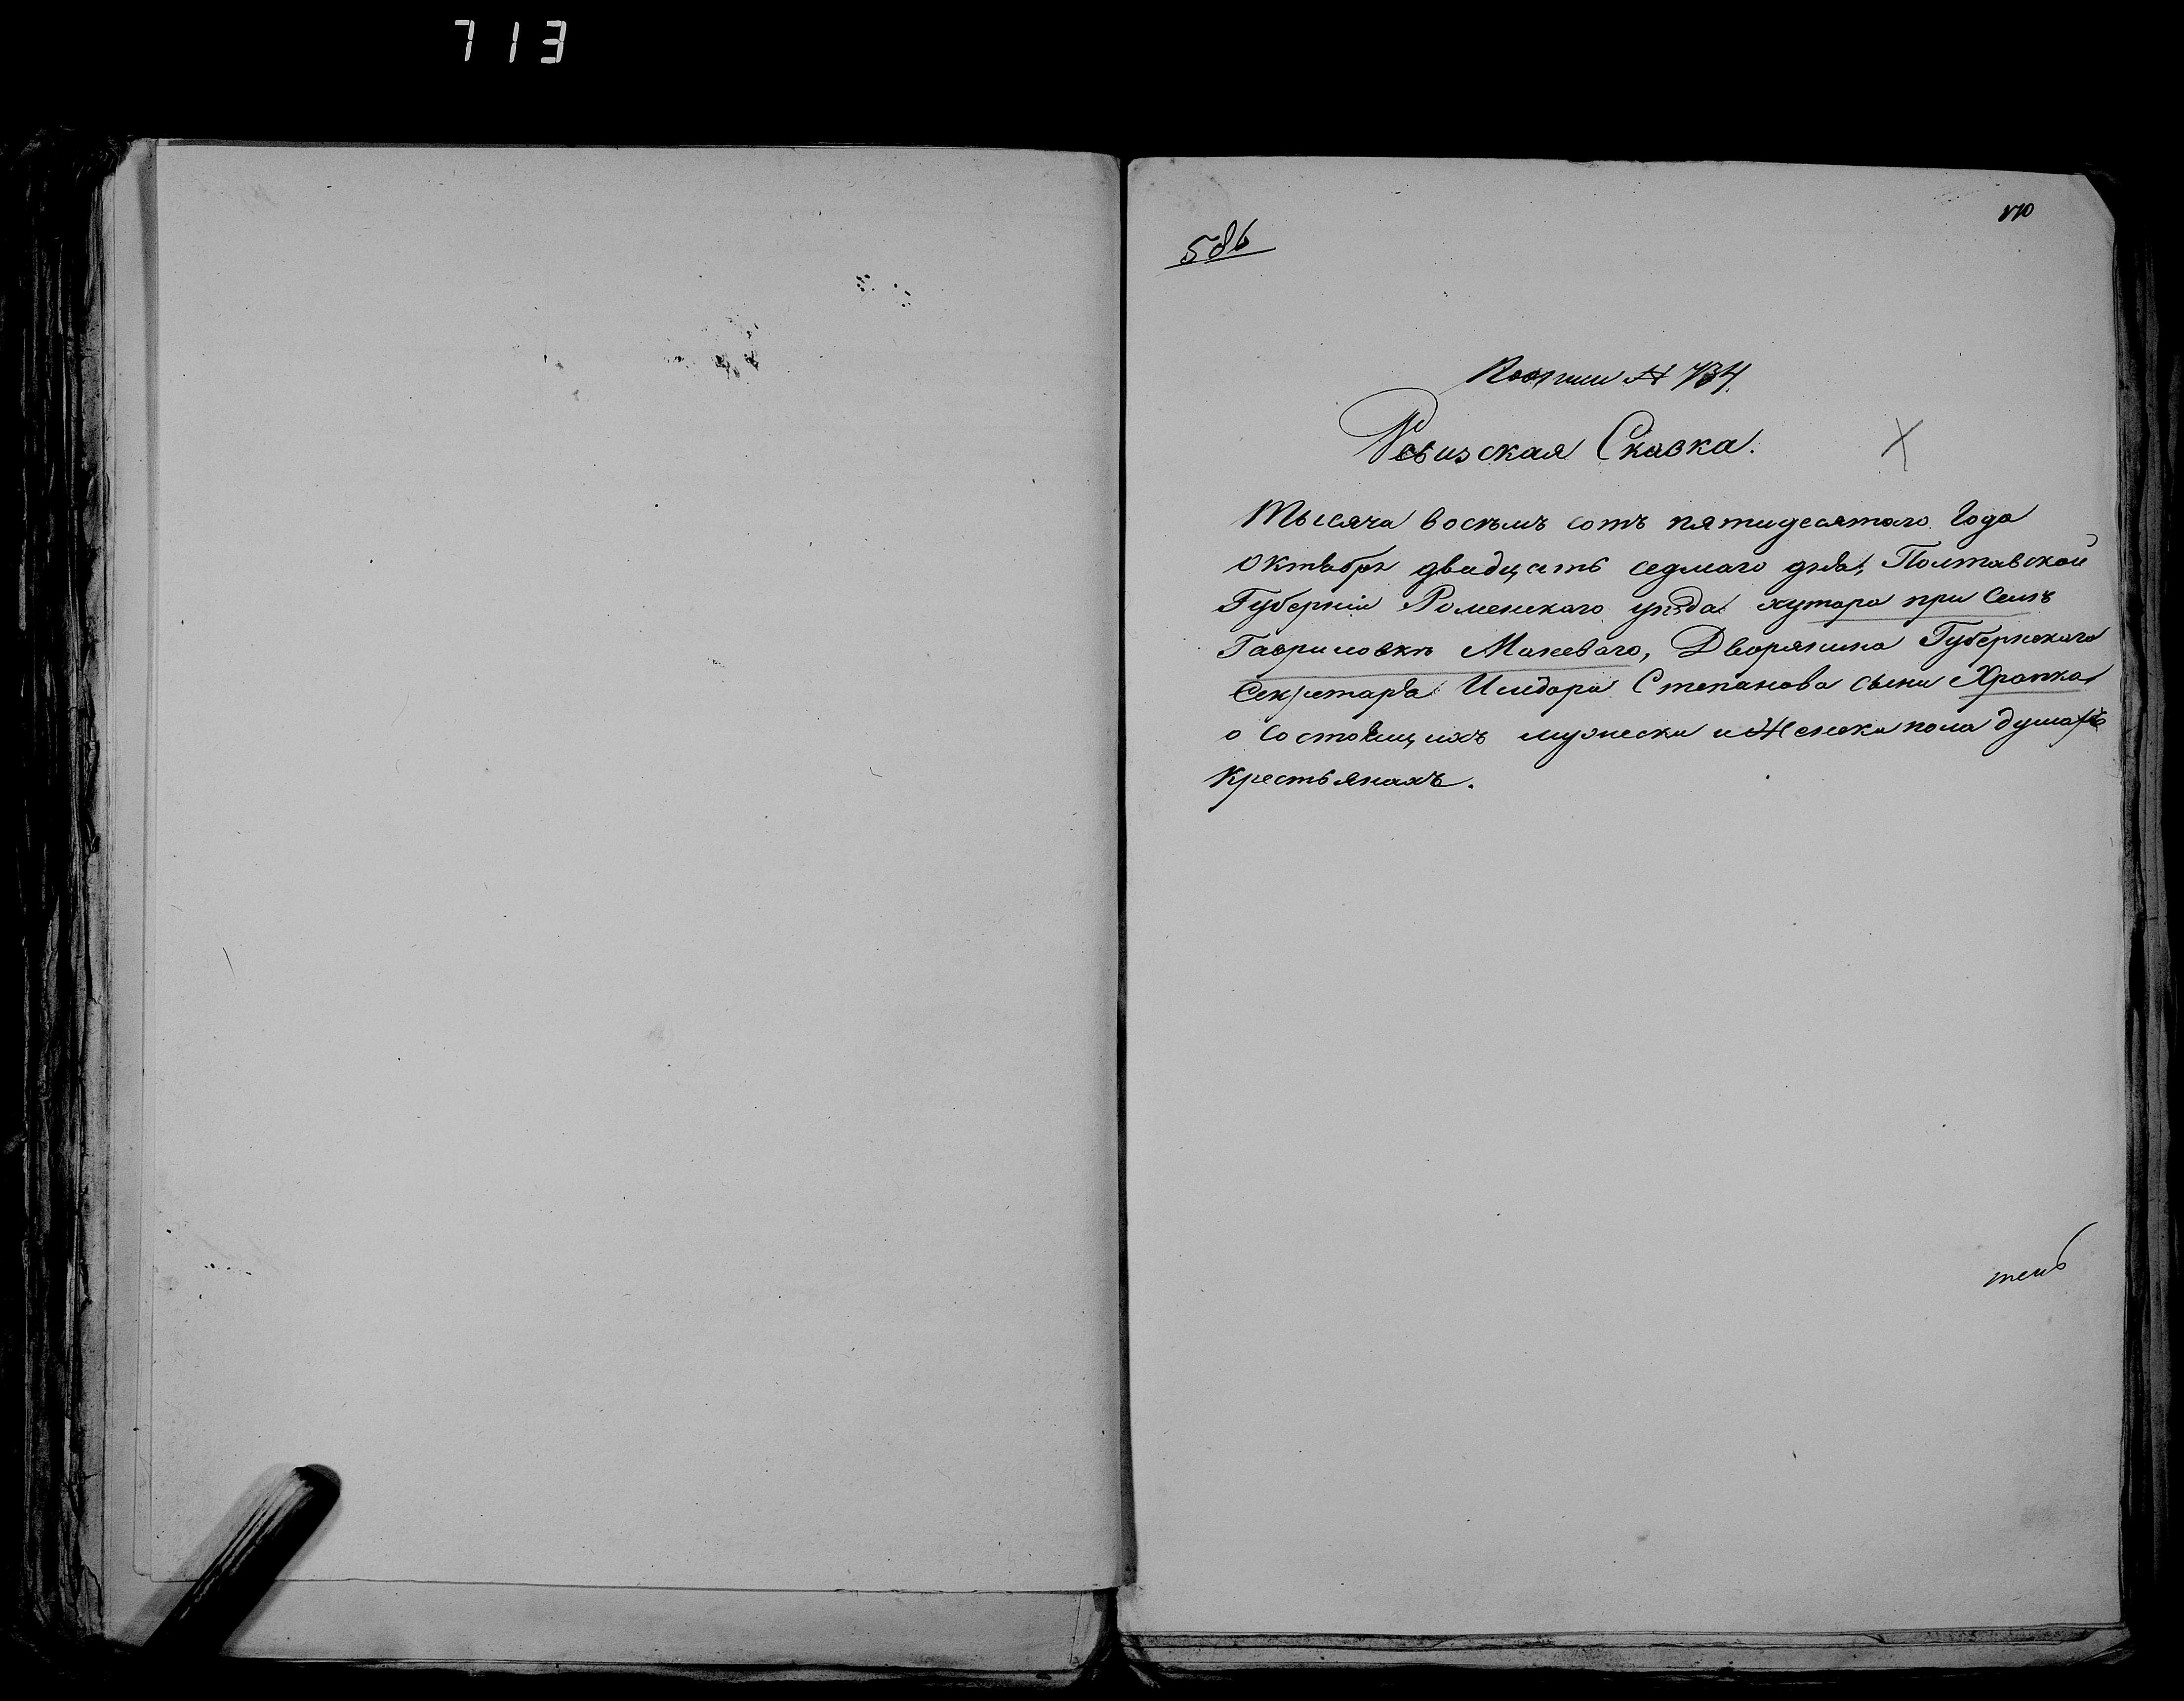 713
586
По описи № 734.
Ревизская Сказка.
Тысяча восемъ сотъ пятидесятаго Года
Октября двадцать седмаго дня, Полтавской
Губерніи Роменскаго уѣзда хутора при Селѣ
Гавриловкѣ Макеваго, Дворянина Губернскаго
Секретаря Исидора Степанова сына Храпка
о Состоящихъ мужеска и Женска пола душахъ
Крестьянахъ.